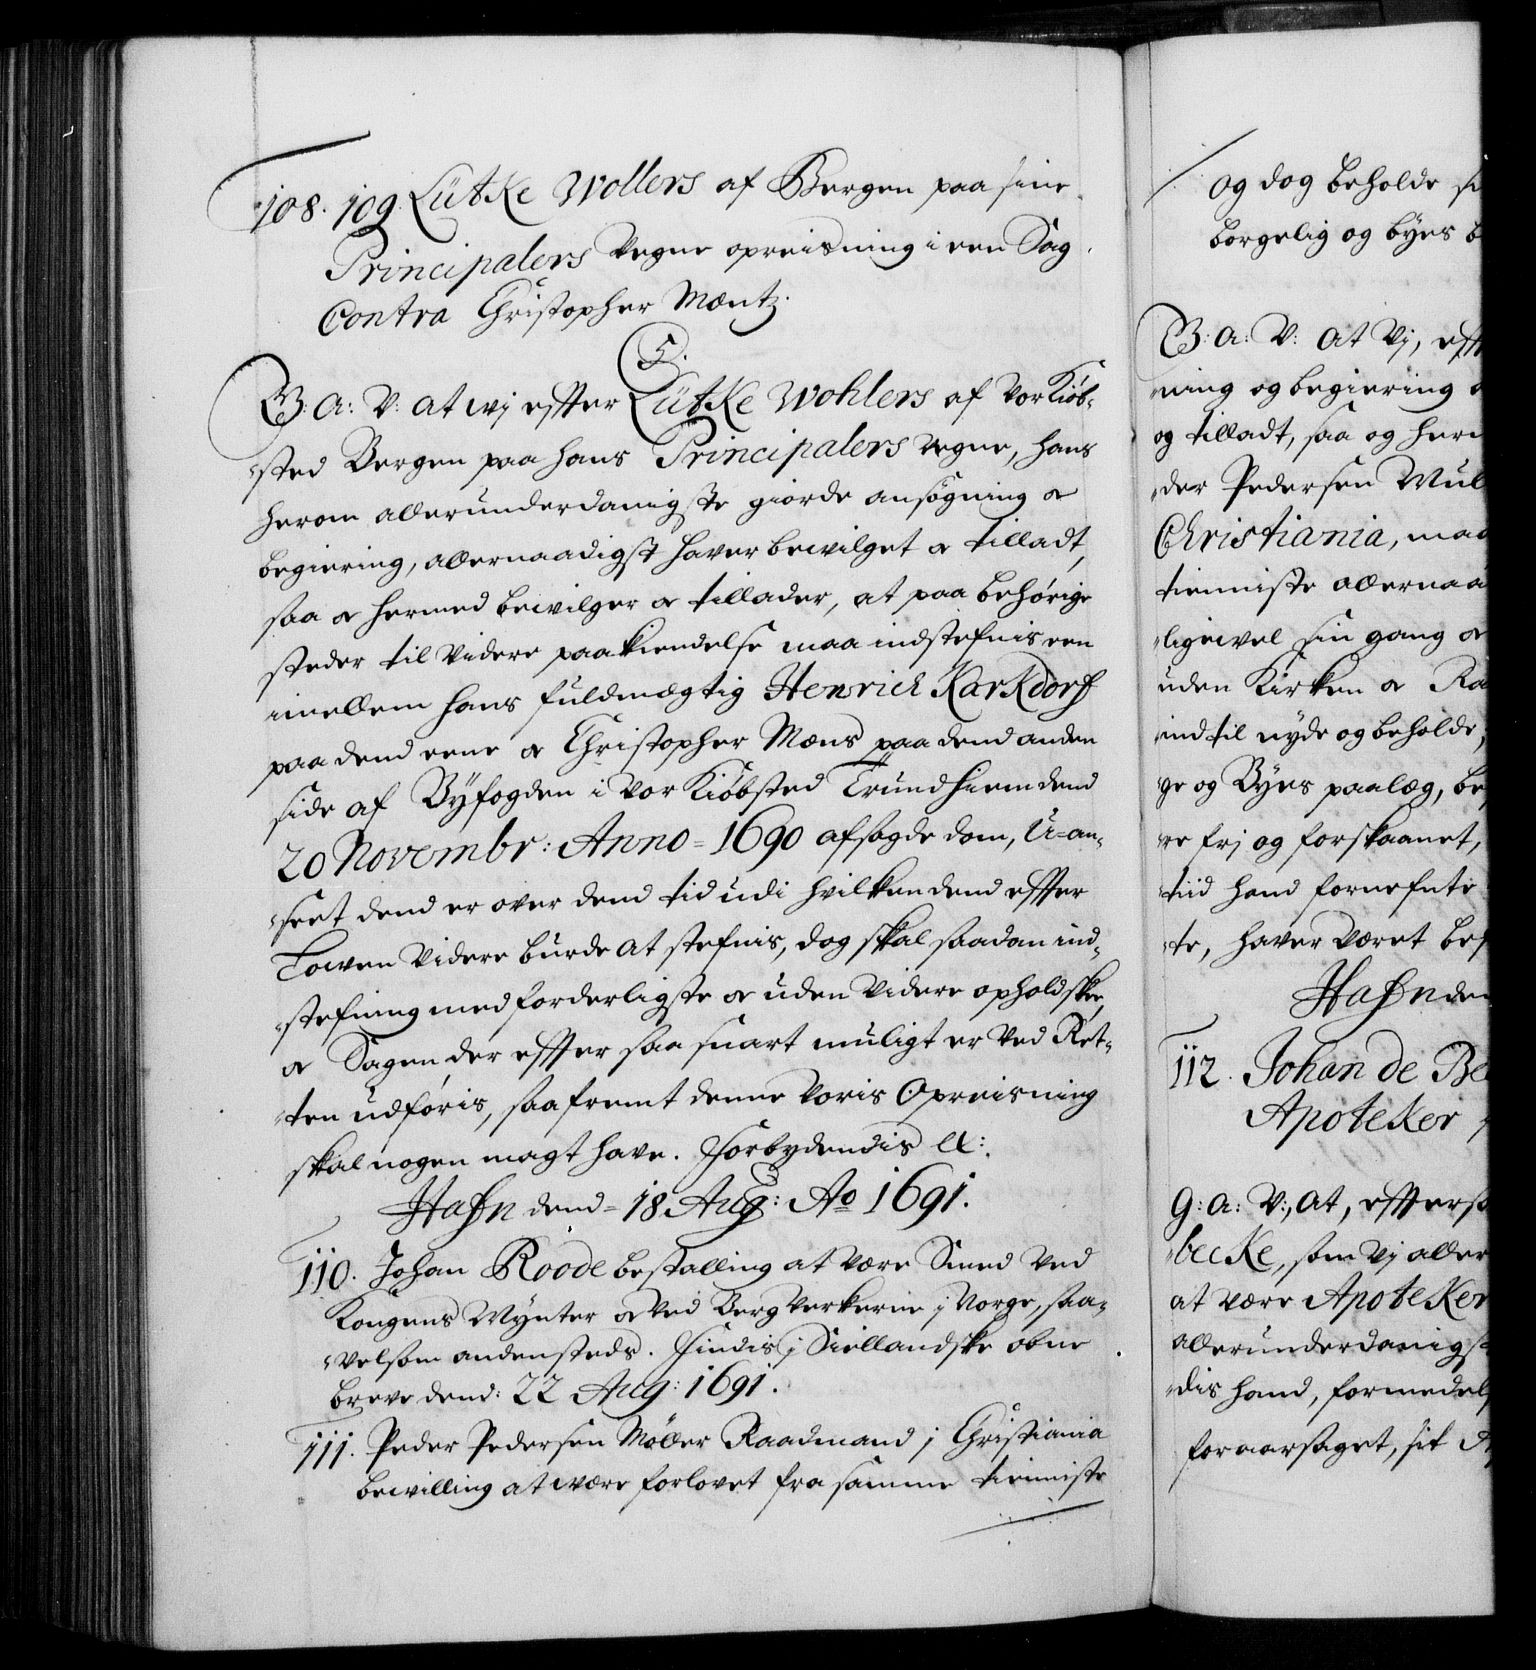 108. 109. Lütke Wollers af Bergen paa sine
Principalers vegne opreisning i een Sag
Contra Christopher Mæntz.
5.
G: A: V: at wj effter Lütke Wohlers af vor Kiøb-
sted Bergen paa hans Principalers vegne, hans
herom allerunderdanigste giorde ansøgning oc
begiering, allernaadigst haver bevilget oc tilladt,
saa oc hermed bevilger oc tillader, at paa behørige
steder til videre paakiendelse maa indstefnis een
imellem hans fuldmægtig Henrich Karkdorf
paa dend eene oc Christopher Mæns paa dend anden
side af Byfogden i vor Kiøbsted Trundhiem dend
20 Novembr: Anno 1690 afsagde dom, U-an-
seet dend er over dend tid udi hvilken dend effter
Lowen videre burde at stefnis, dog skal saadan ind-
stefning med forderligste oc uden videre ophold skee,
oc Sagen der effter saa snart muligt er ved Ret-
ten udføris, saafremt denne voris Opreisning
skal nogen magt have. Forbydendis etc:
Hafn dend 18 Aug: Ao 1691.
110. Johan Roode bestalling at være Smed ved
Kongens Mynter oc ved Bergverkerne j Norge, saa-
velsom andensteds. Findis j Siellandske obne
breve dend: 22 Aug: 1691.
111. Peder Pedersen Møller Raadmand j Christiania
bevilling at være forlovet fra samme tienniste
og dog beholde
borgelig og byes
G: A: V: at Vj,
ning og begiering
og tilladt, saa og
der Pedersen
Christiania,
tienniste
ligevel sin gang oc
uden Kirken oc
indtil nyde og beholde,
ge og Byes paalæg,
re frj og forskaanet,
tiid hand fornefnte
te, haver været
Hafn
112. Johan de
Apoteker
G: A: V:, at,
becke, som vj
at være Apoteker
allerunderdanigst
dis hand,
foraarsaget, sit